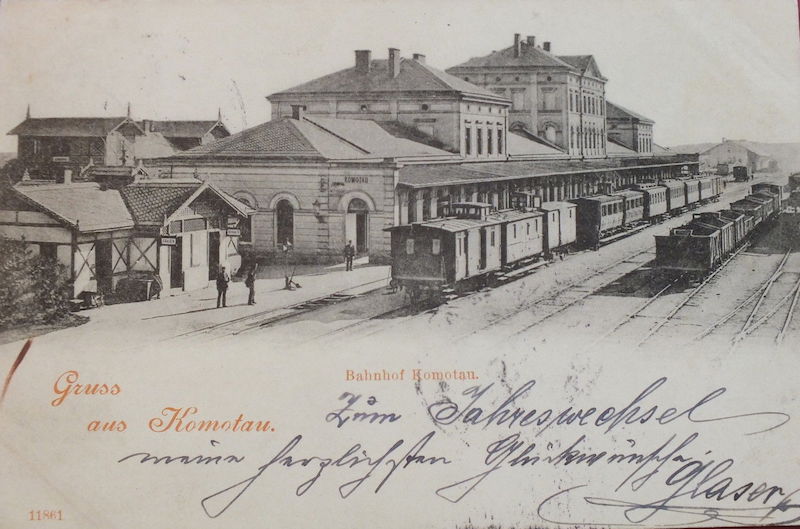 KOMOTAU
Bahnhof Komotau.
Gruss
aus Komotau.
Zum Jahreswechsel
meine herzlichsten Glückwünsche
Glaser
11861